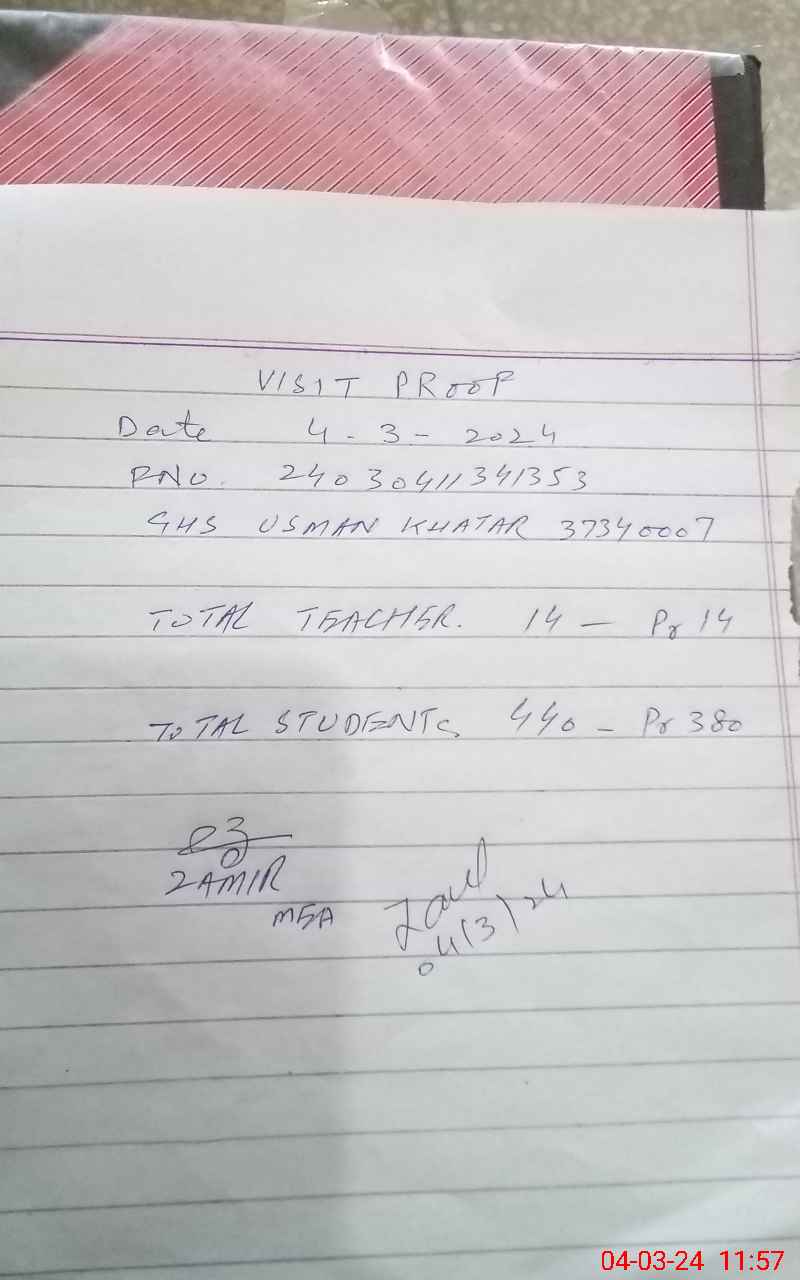 VISIT PROOF
Date 4-3-2024
RNO. 24030411341353
GHS USMAN KHATAR 37340007
TOTAL TEACHER. 14 — Pr 14
TOTAL STUDENTS 440 - Pr 380
ZAMIR
MEA
04/3/24
04-03-24 11:57